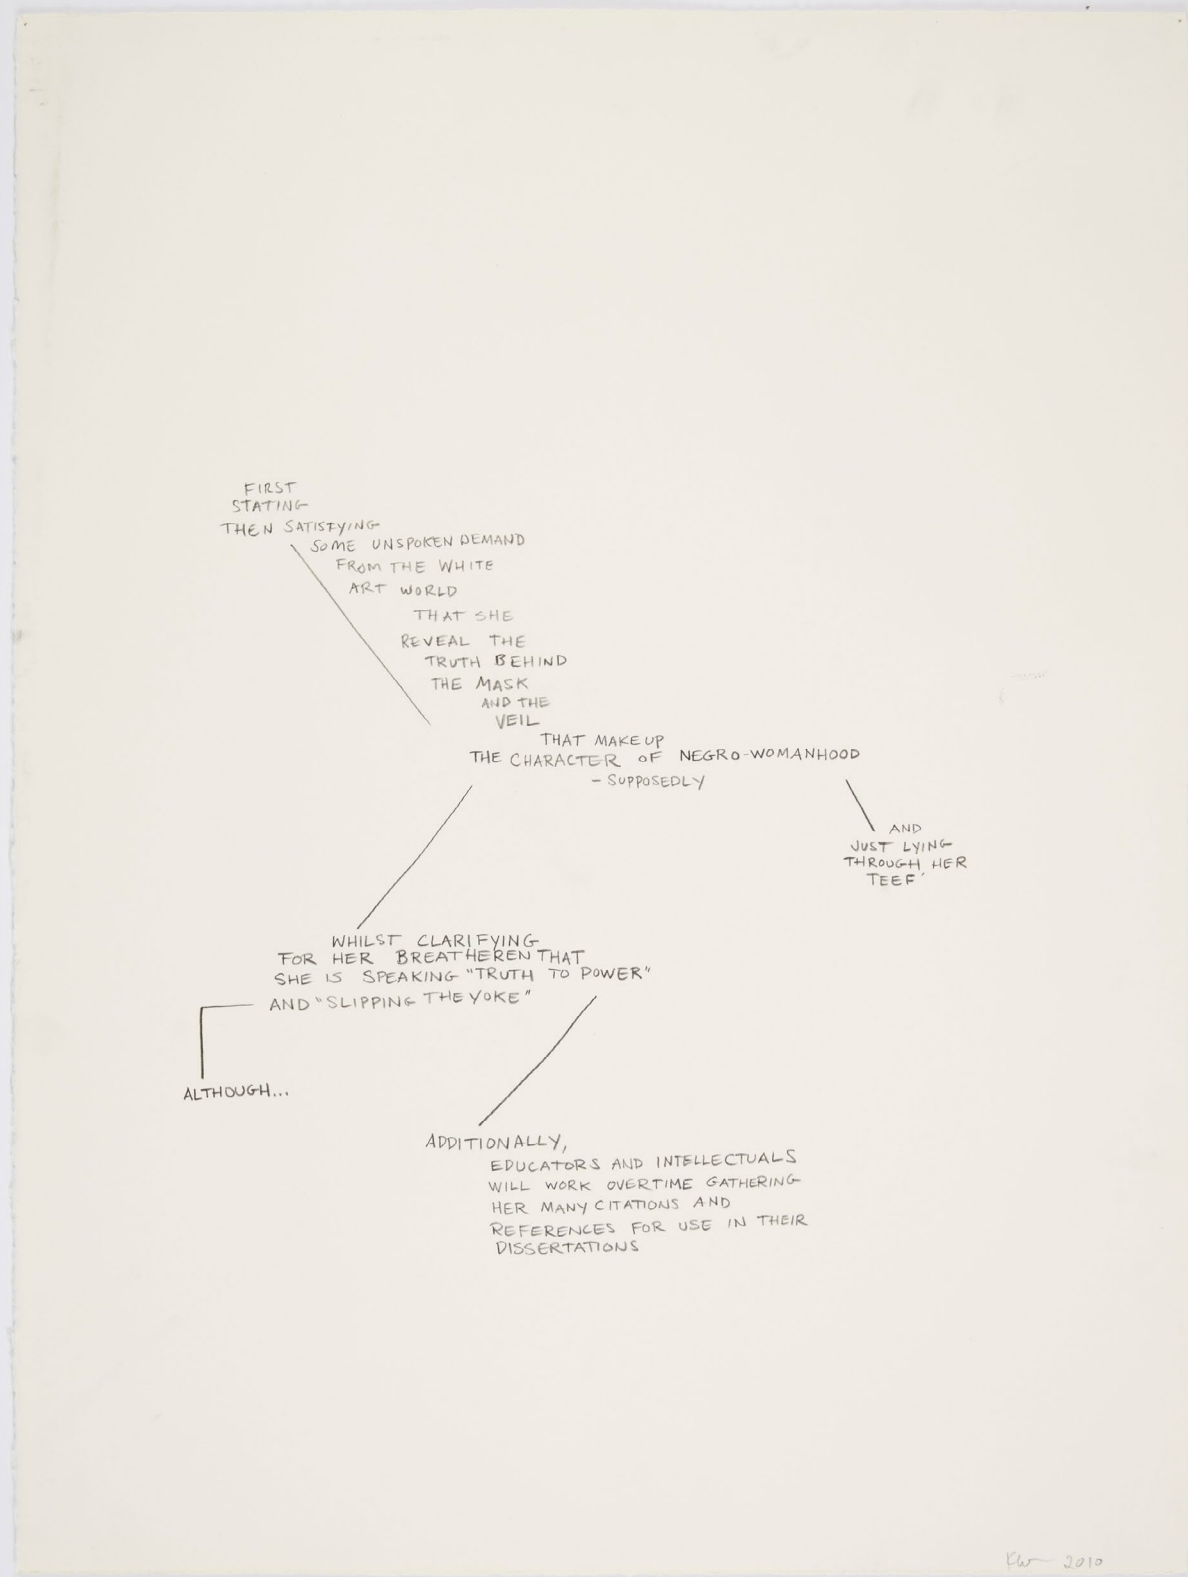 FIRST
STATING
THEN SATISFYING
SOME UNSPOKEN DEMAND
FROM THE WHITE
ART WORLD
THAT SHE
REVEAL THE
TRUTH BEHIND
THE MASK
AND THE
VEIL
THAT MAKE UP
THE CHARACTER OF NEGRO-WOMANHOOD
- SUPPOSEDLY
AND
JUST LYING
THROUGH HER
TEEF'
WHILST CLARIFYING
FOR HER BREATHEREN THAT
SHE IS SPEAKING "TRUTH TO POWER"
AND "SLIPPING THE YOKE"
ALTHOUGH...
ADDITIONALLY,
EDUCATORS AND INTELLECTUALS
WILL WORK OVERTIME GATHERING
HER MANY CITATIONS AND
REFERENCES FOR USE IN THEIR
DISSERTATIONS
KW 2010